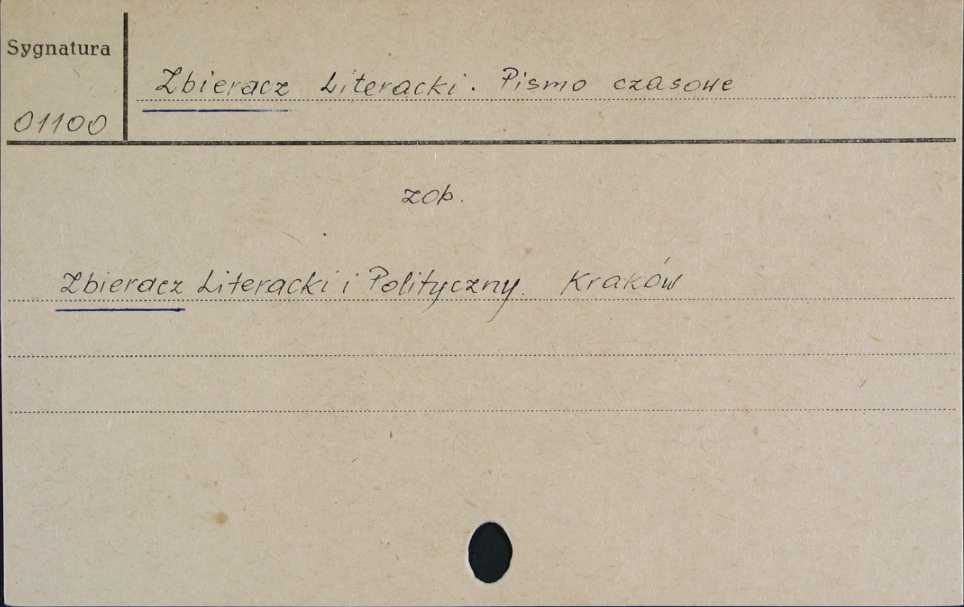 Sygnatura
Zbieracz Literacki. Pismo czasowe
01100
zob.
Zbieracz Literacki i Polityczny. Kraków